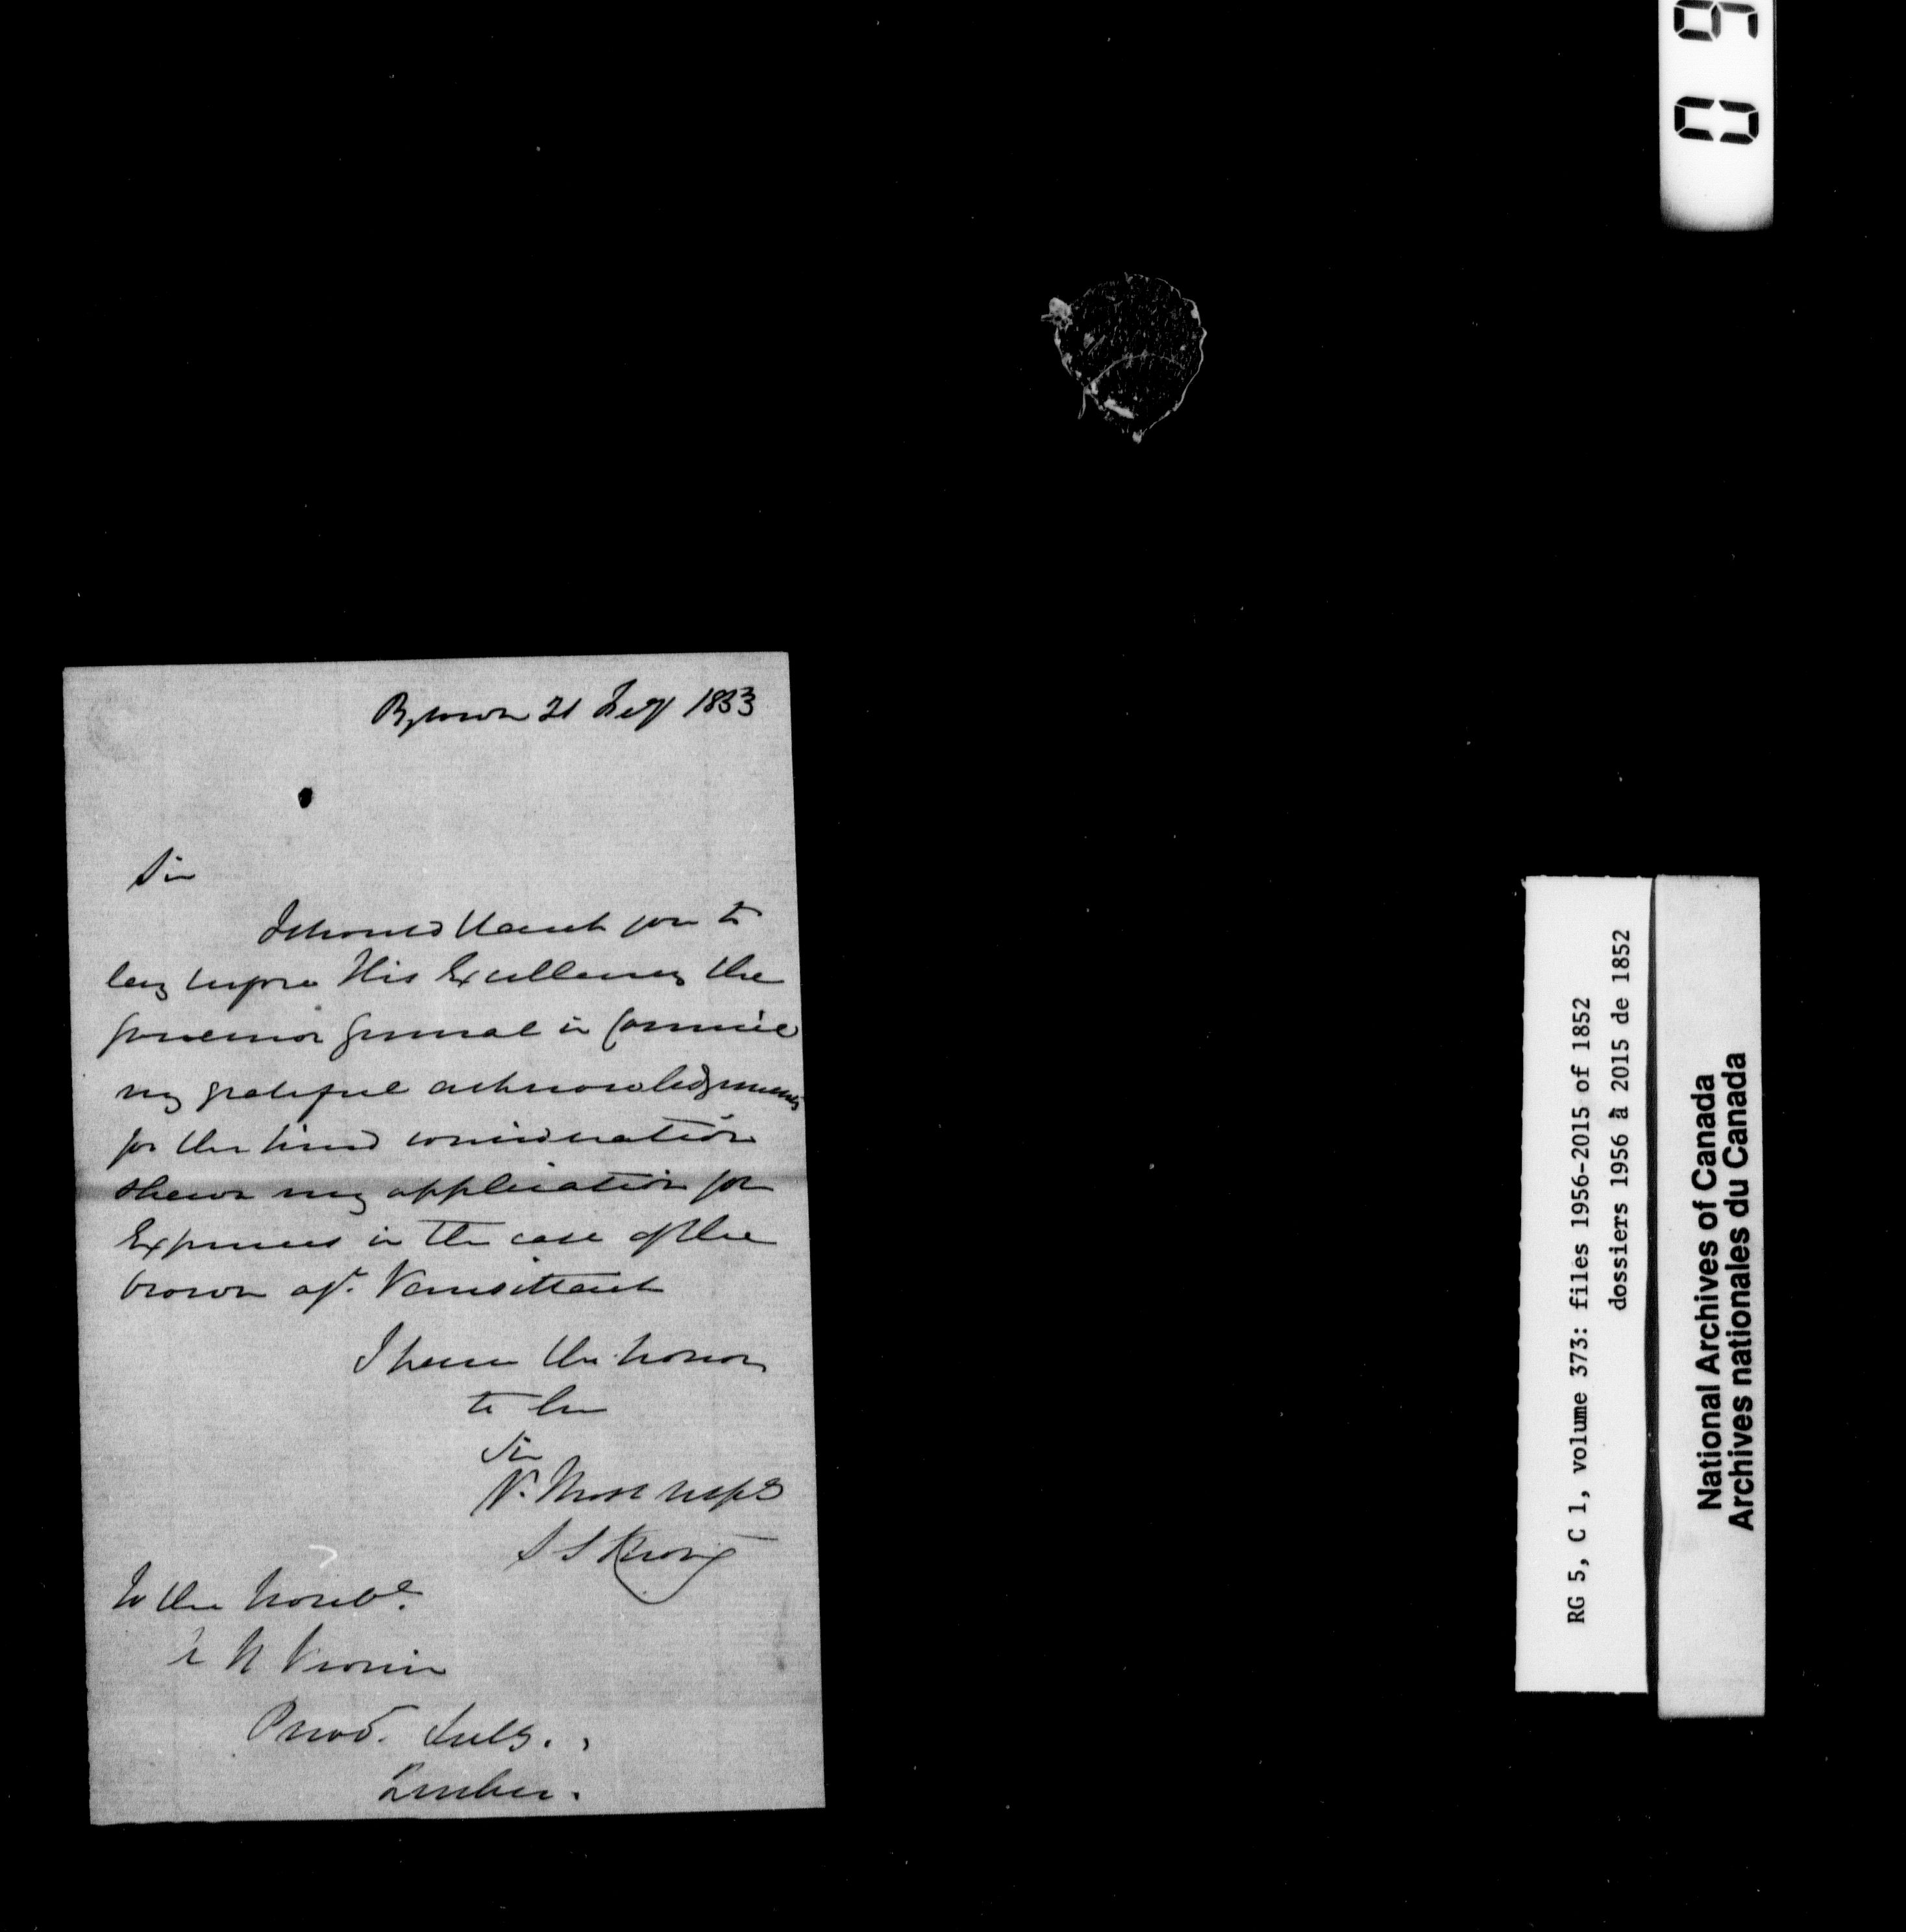 Bytown 21 Feby 1853
Sir
I should thank you to
lay before His Excellency the
Governor General in Council
my grateful acknowledgments
for the kind consideration
shewn my application for
Expenses in the case of the
Crown agt. Vansittart
I have the honor
to be
Sir
Yr. Most respe
S S Strong
To the Honble.
A N Morin
Provl. Secty.,
Quebec.
09
RG 5, C 1, volume 373: files 1956-2015 of 1852
dossiers 1956 à 2015 de 1852
National Archives of Canada
Archives nationales du Canada